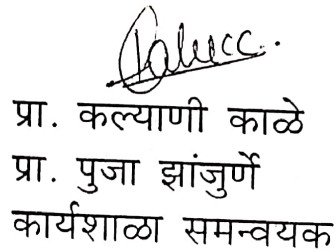 प्रा. कल्याणी काळे
प्रा. पुजा झांजुर्णे
कार्यशाळा समन्वयक